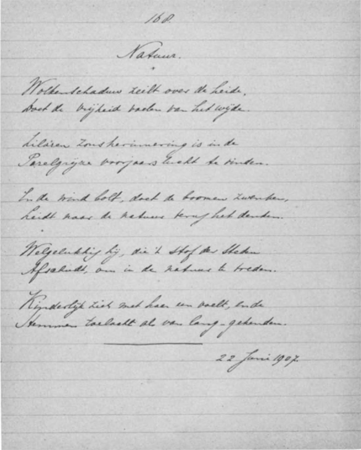 168.
Natuur.
Wolkenschaduw zeilt over de heide,
Doet de vrijheid voelen van het wijde.
Lilaren zonsherinnering is in de
Parelgrijze voorjaarslucht te vinden.
En de wind die doet de boomen zwenken,
Leidt naar de natuur terug het denken.
Welgelukkig hij, die 't stof der steden
Afschudt, om in de natuur te treden.
Kinderlijk zich met haar een voelt, en de
Stemmen toelacht als van lang-gekenden.
22 Juni 1907